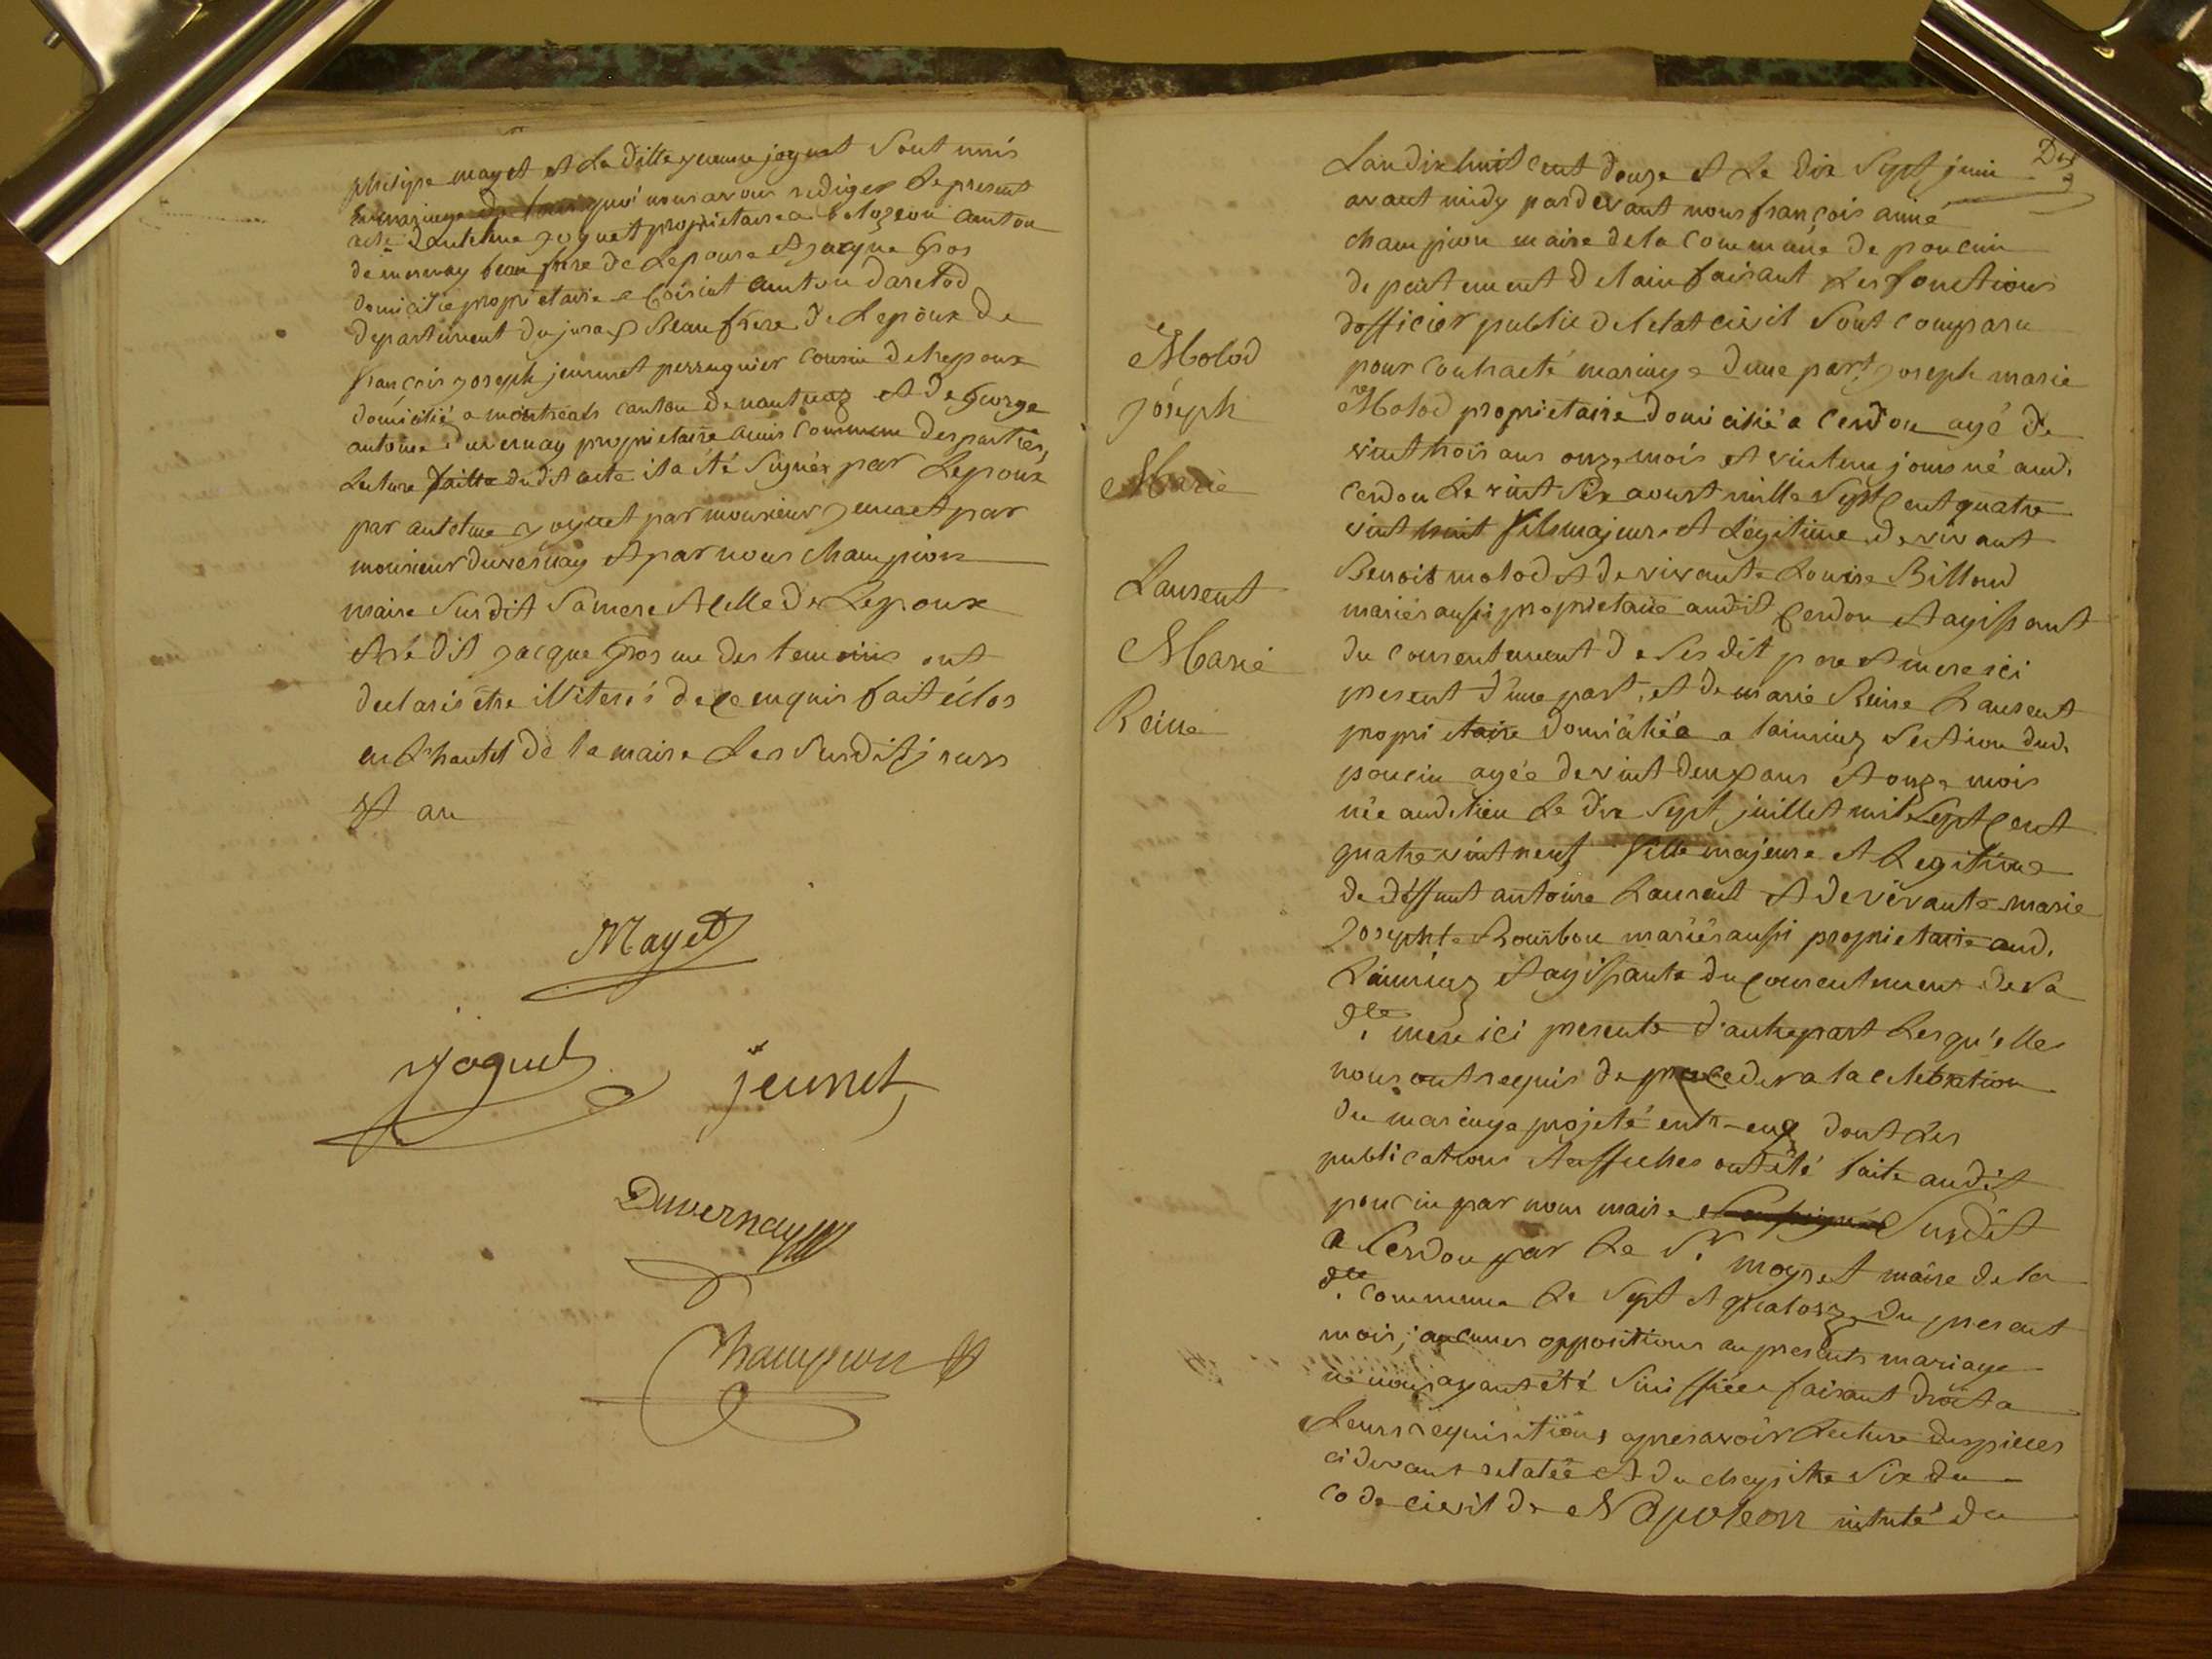 philipe mayet et La ditte jeanne joguet Sont unis
En mariage de tous quoi nous avons rediger Le present
acte d'antelme joguet proprietaire a bolozon canton
de mornay beau frere de Lepouse et jacque Gros
domicilié proprietaire a Coisiat canton daretod
departement du jura Beaufrere de Lepoux de
françois joseph jeunnet perruquier cousin de Lepoux
domicilié a montreals canton de nantuas et de George
antoine duvernay proprietaire amis commun des parties,
Lecture faitte dudit acte il a été Signér par Lepoux
par antelme joguet par monsieur jeunet par
monsieur duvernay et par nous champion
maire Susdit Sa mere et Celle de Lepoux
et Ledit jacque Gros un des temoins ont
declaris être illiteris de ce enquis fait é clos
en L'hautel de la maire Les Susdit jours
et an
Mayet
Joguet
jeunet
Duvernay
Champion
Dix
Lan dix huit cent douze et Le dix Sept juin
avant midy pardevant nous françois aimé
champion maire de la commune de poncin
departement de lain faisant Les fonctions
dofficier public de letat civil Sont comparu
pour contracté mariage dune part joseph marie
Molod proprietaire domicilié a cerdon agé de
vint trois ans onze mois et vintun jours né aud.
cerdon Le vint Six aoust mille Sept cent quatre
vint huit fils majeure et Légitime de vivant
Benoit molod et de vivante Louise Billoud
mariés aussi proprietaire audit Cerdon et agissant
du consentement de Ses dit pere et mere ici
present d'une part, et de marie Reine Laurent
proprietaire domicilié a lainieuz Section dud.
poncin agée de vint deux ans et onze mois
née aud. lieu Le dix Sept juillet mil Sept cent
quatre vint neuf fille majeure et Legitime
de deffunt antoine Laurent et de vivante marie
Josephte Bourbou mariés aussi proprietaire aud.
Lainieuz et agissante du consentement de Sa
dte mere ici presente d'autre part Lesqu'elle
nous ont requis de proceder a la celebration
du mariage projeté entr-eux dont Les
publications et affiches ont été faite audit
poncin par nous maire Susdit
a Cerdon par Le Sr. moyret maire de la
dte commune Le Sept et quatorze du present
mois; aucunes oppositions au presents mariage
ne nous ayant été Siniffiée faisant droit a
Leurs requisitions apres avoir Lecture des pieces
ci devant relatée et du chapitre Six du
code civil de Napoléon intulé du
Molod
joseph
Marie
Laurent
Marie
Reine